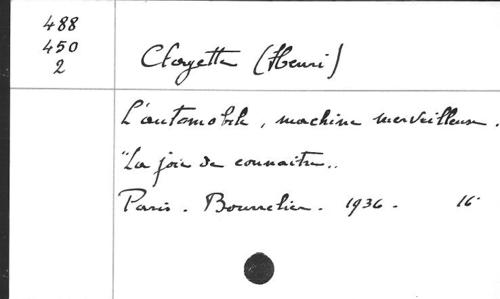 488
450
2
Clozette (Henri)
L'automobile, machine merveilleuse.
"La joie de connaître..
Paris. Bourrelier. 1936. 16°